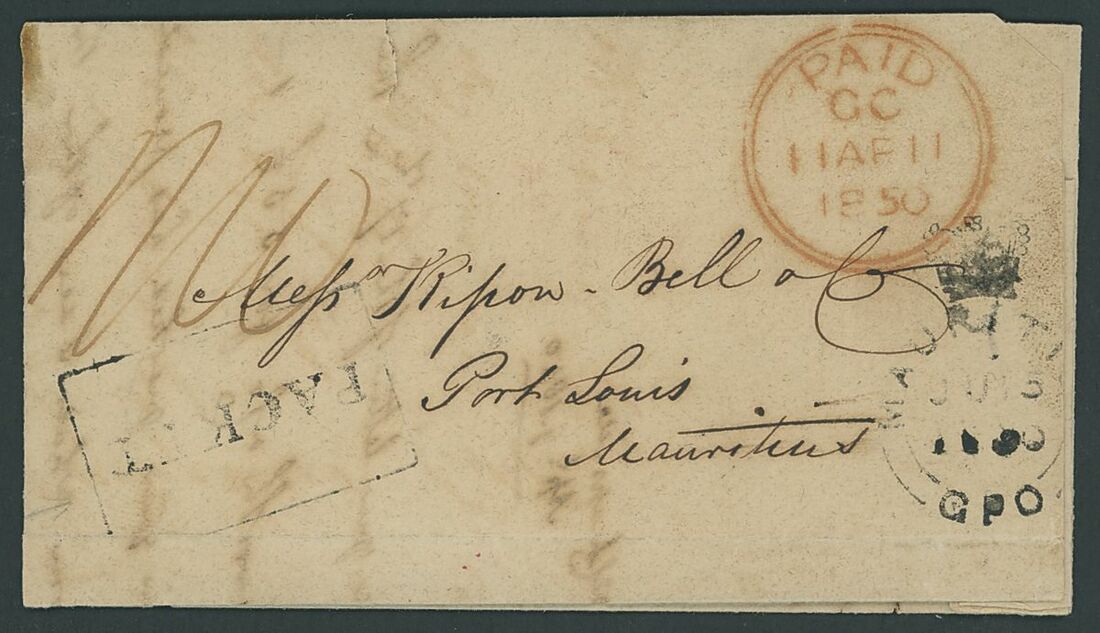 PAID
GC
11AP11
1850
Messrs Ripon - Bell & Co
Port Louis
Mauritius
PACKET
MAURITIUS
JUN 5
1850
GPO